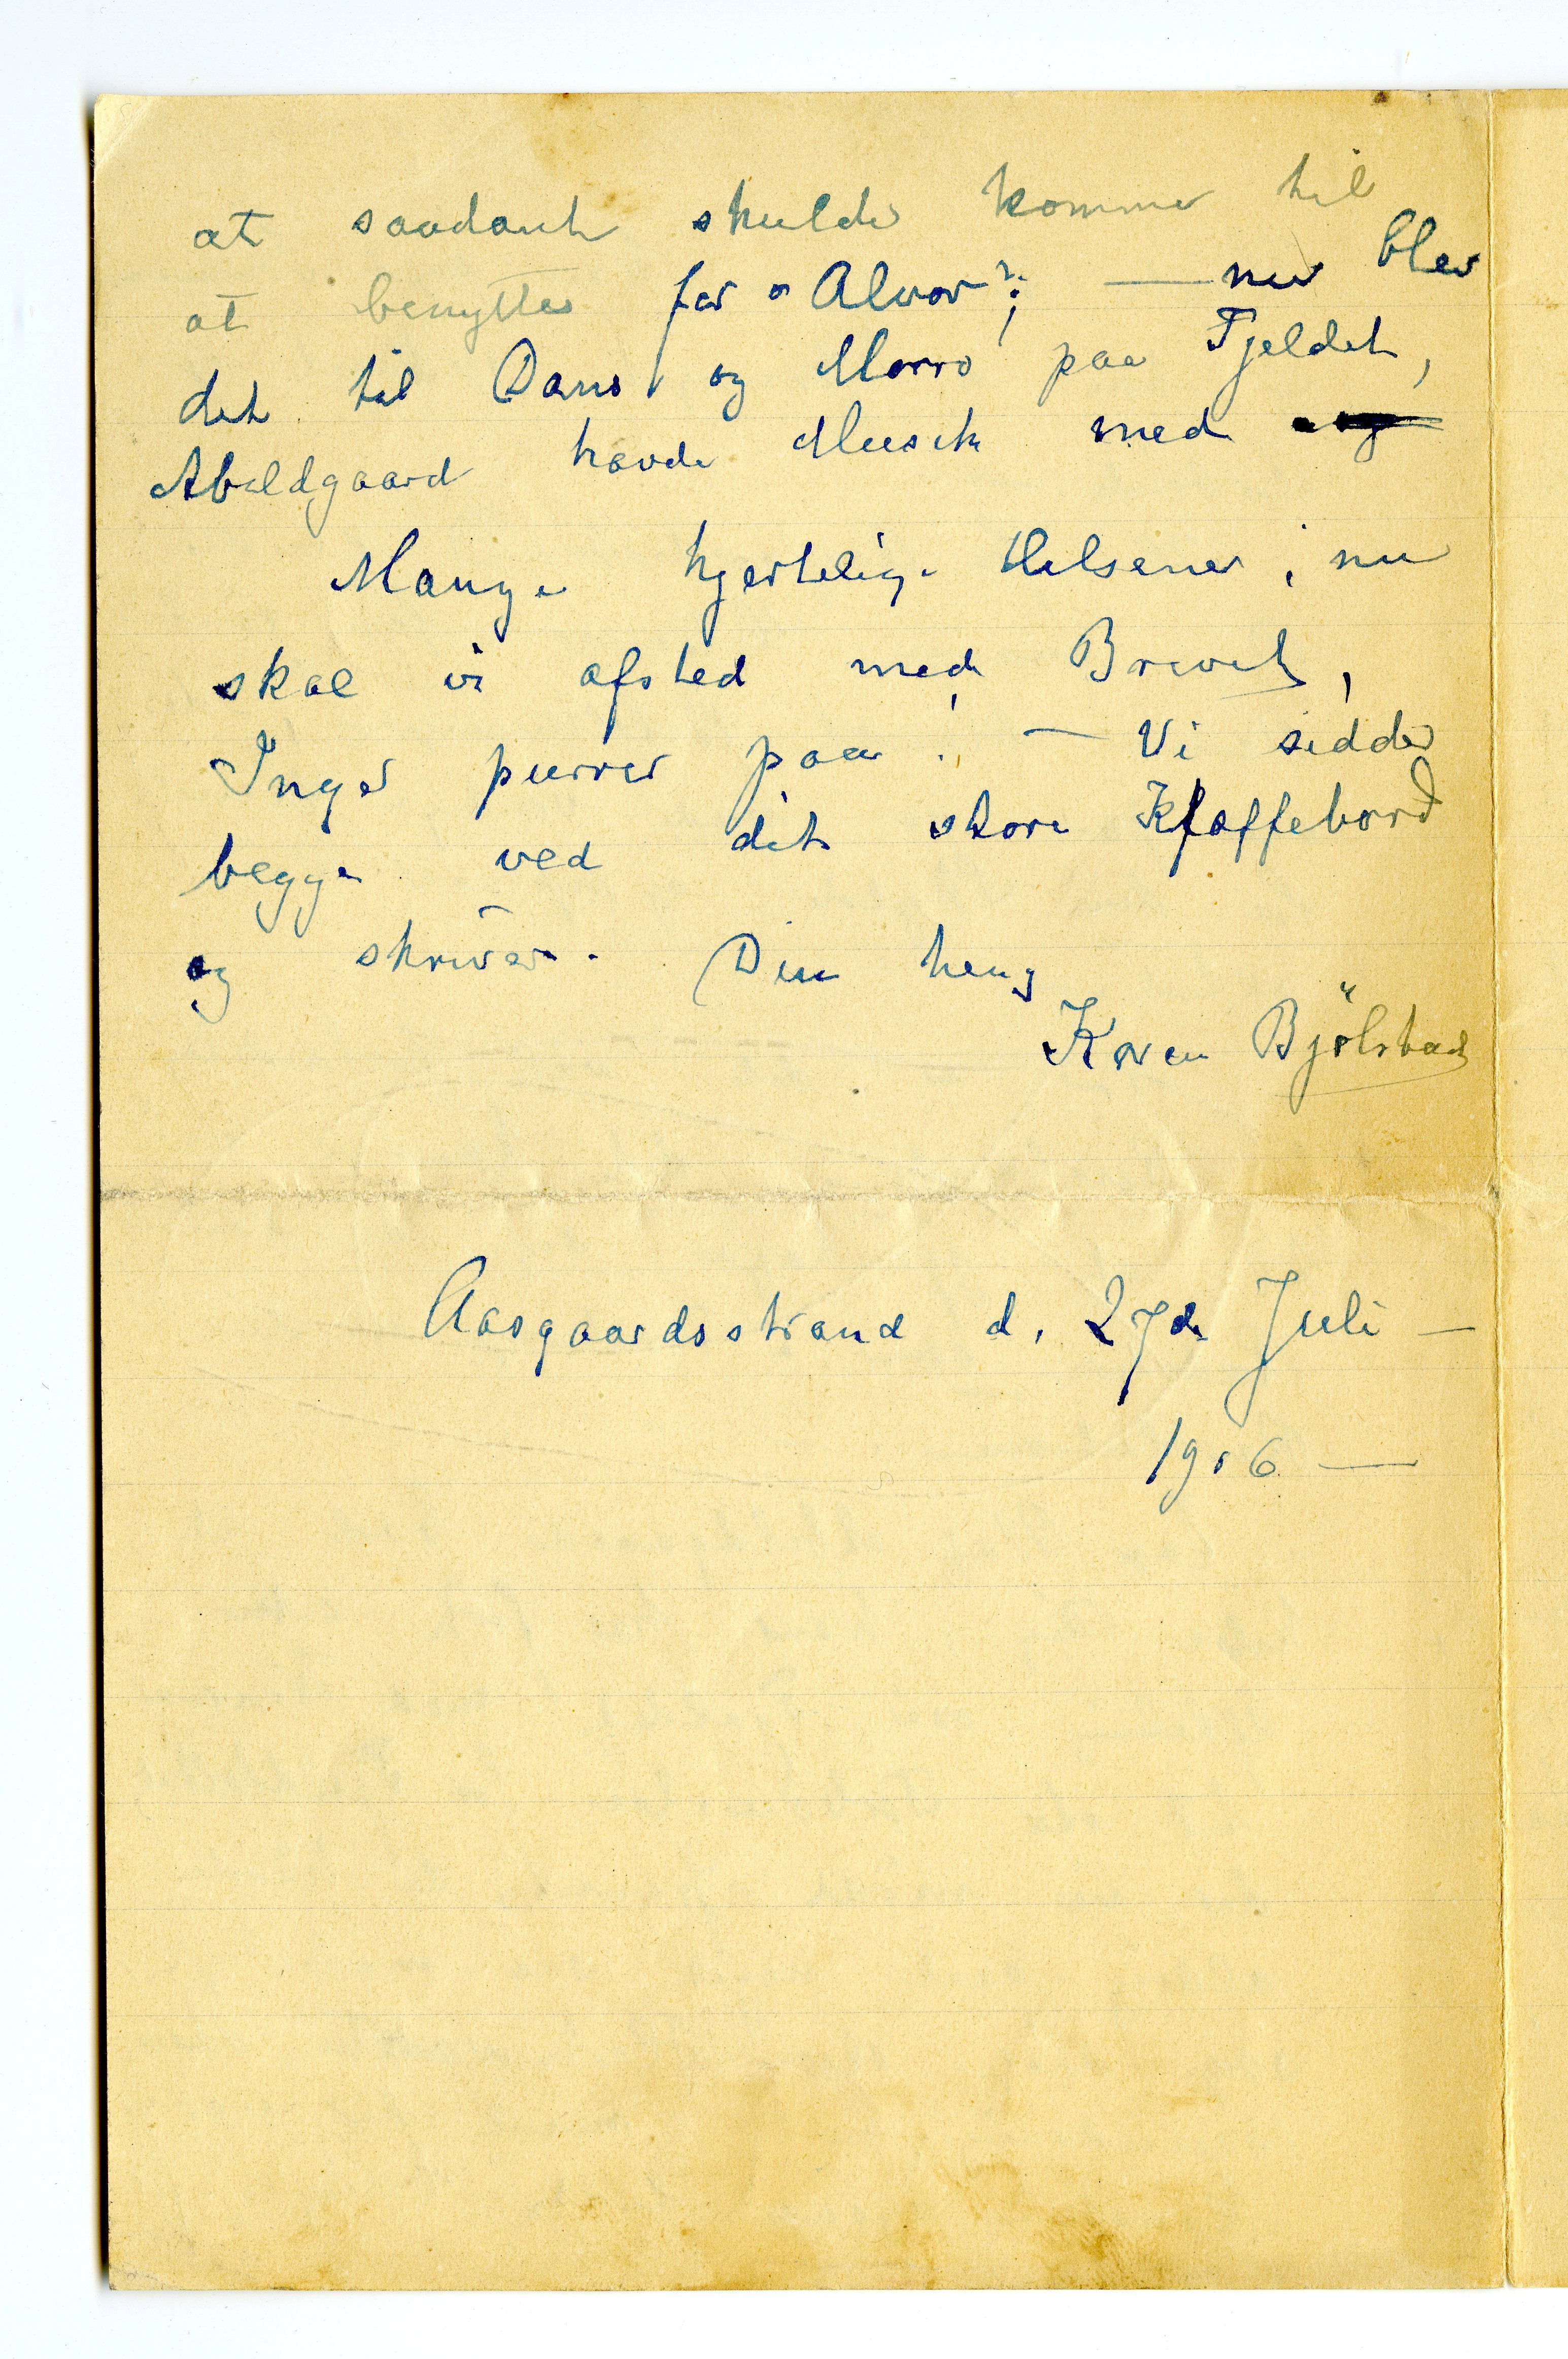 at saadant skulde komme til
at benyttes for "Alvor"; — nu blev
det til Dans og Morro paa Fjeldet,
Abildgaard havde Musik med
Mange hjertelige Hilsener, nu
skal vi afsted med Brevet,
Inger purrer paa! — Vi sidder
begge ved dit store Kfaffebord
og skriver. Din heng
Karen Bjölstad
Aasgaardsstrand d. 27de Juli —
1906 —